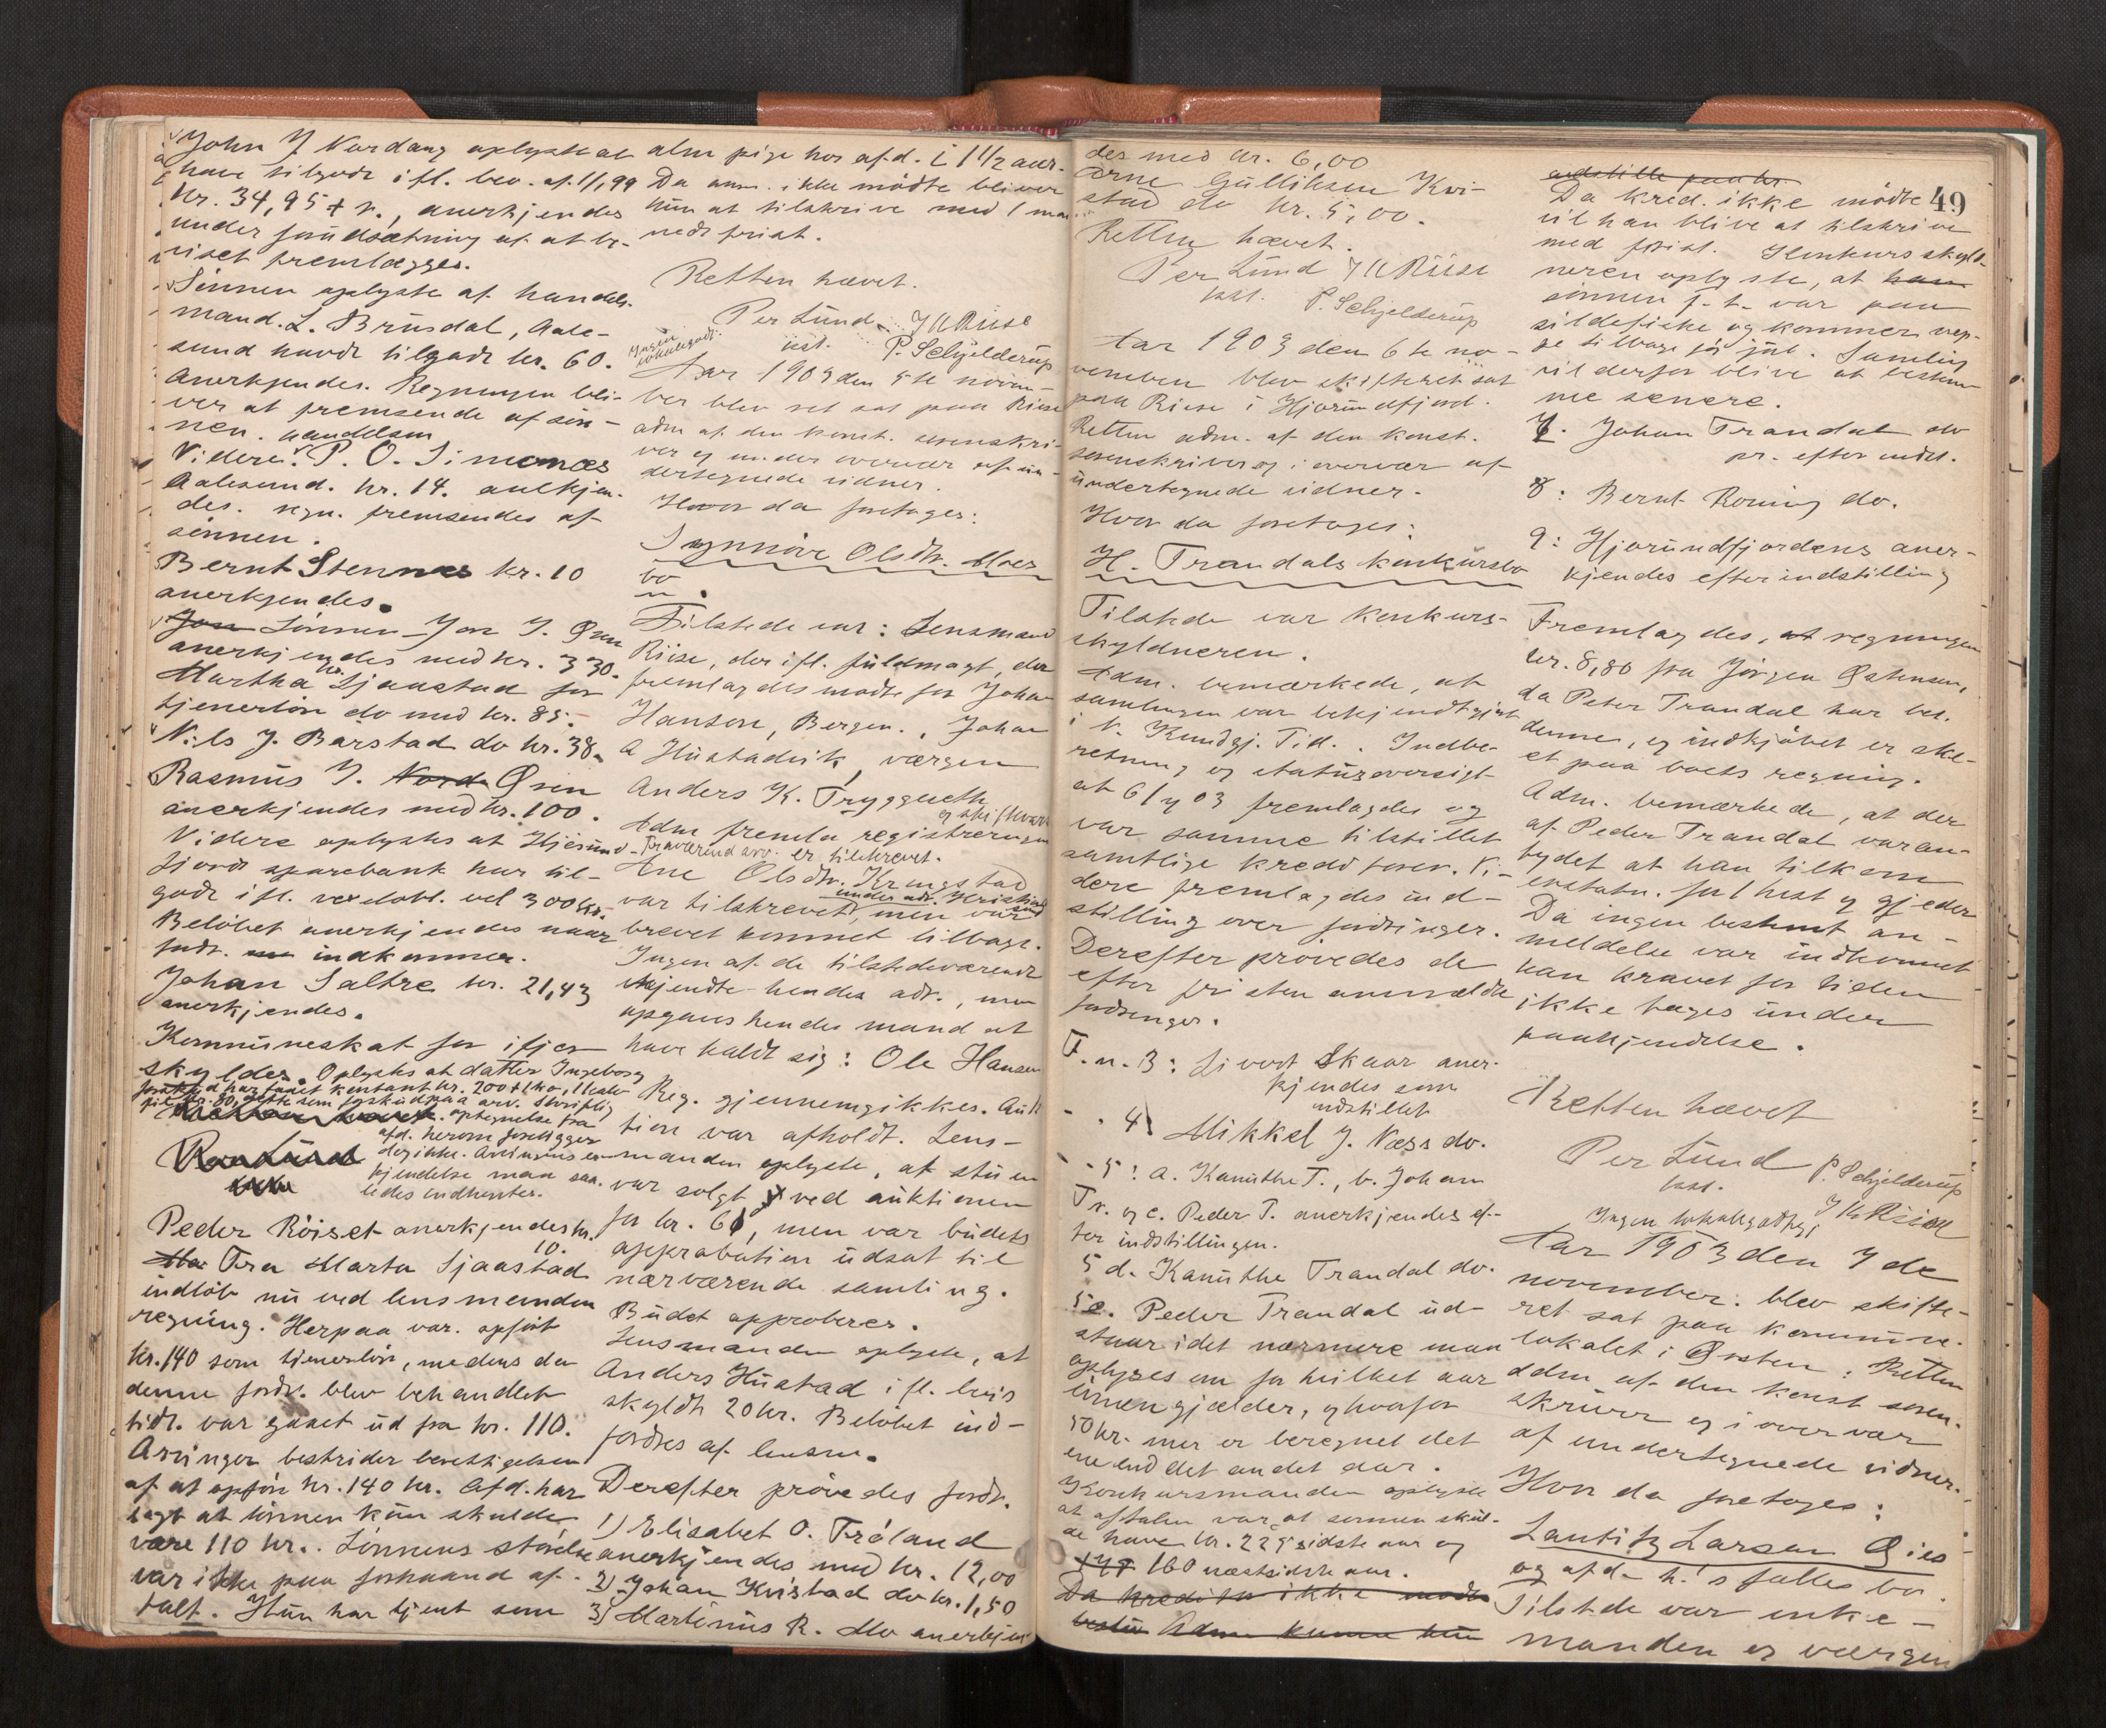 John J Nordang oplyst at
have tilgode ifl. bev. af 1/1 99
kr. 34,95 + r., anerkjendes
under forudsætning af at be-
viset fremlægges.
Sönnen oplyste af handels-
mand. L. Brusdal, Aale-
sund havde tilgode kr. 60.
Anerkjendes. Regningen bli-
ver at fremsende af søn-
nen. handelsm
Videre: P. O. Simonæs
Aalesund. kr. 14. anerkjen-
des. regn. fremsendes af
sönnen.
Bernt Stennes kr. 10
anerkjendes.
Jon Sönnen Jon J. Øvin
anerkjendes med kr. 330.
Martha Sjaastad for
tjenerløn do med kr. 85.
Nils J. Barstad do kr. 38.
Rasmus J. Nord Øvin
anerkjendes med kr. 100.
Videre oplystes at Hjørund-
fjords sparebank har til-
gode ifl. vexelobl. vel 300 kr.
Beløbet anerkjendes naar
fodr. indkommer.
Johan Saltre kr. 21,43
anerkjendes.
Kommuneskat for ifjor
skyldes. Oplystes at datter Ingeborg
har faaet kontant kr. 200 + 1 ko, 11
kr. 80, dette som forskud paa arv. Skriftlig
optegnelse fra
afd. herom foreligger
dog ikke. Arvingens er-
kjendelse maa saa-
ledes indhentes.
Peder Röiset anerkjendes kr.
10.
Fra Marta Sjaastad
indløb nu ved lensmanden
regning. Herpaa var opført
kr. 140 som tjenerløn, medens da
denne fordr. blev behandlet
tidl. var gaaet ud fra kr. 110.
Arvinger bestrider berettigelsen
af at opføre kr. 140 kr. Afd. har
sagt at lönnen kun skulde
være 110 kr. Lönnens størelse
var ikke paa forhaand af-
talt. Hun har tjent som
alm pige hos afd. i 1 1/2 aar.
Da anm. ikke mödte bliver
hun at tilskrive med 1 maa-
neds frist.
Retten hævet.
Per Lund JKRiise
kst. P. Schjelderup
Ingen
lokalegodt.
Aar 1903 den 5te novem-
ber blev ret sat paa Riise
adm af den konst. sorenskri-
ver og under overvær af un-
dertegnede vidner.
Hvor da foretoges:
Synnöve Olsdtr. Moes
bo.
Tilstede var: Lensmand
Riise, der ifl. fuldmagt, der
fremlagdes mødte for Johan
Hansen, Bergen., Johan
A Hustadvik, værgen
Anders K. Tryggseth
og skiftevær
Adm fremla registreringen
Fraværend arv. er tilskrevet.
Ane Olsdtr. Kringstad
under adr. Kristian
sund
var tilskrevet, men var
brevet kommet tilbage.
Ingen af de tilstedeværende
kjendte hendes adr., men
opgaves hendes mand at
have kaldt sig: Ole Hansen
Reg. gjennemgikkes. Auk
tion var afholdt. Lens-
manden oplyste, at stuen
var solgt ved auktionen
for kr. 61, men var budets
approbation udsat til
nærværende samling.
Budet approberes.
Lensmanden oplyste, at
Anders Hustad ifl. bevis
skyldte 20 kr. Beløbet ind-
fordres af lensm.
Derefter prövedes fordr.
1) Elisabet O. Tröland
anerkjendes med kr. 12,00
2) Johan Kvistad do kr. 1,50
3) Martinus R. Mo anerkjen-
des med kr. 6,00
Arne Gulliksen Kvi-
stad do kr. 5,00.
Retten hævet.
Per Lund JKRiise
kst. P. Schjelderup
Aar 1903 den 6te no-
vember blev skifteret sat
paa Riise i Hjørundfjord.
Retten adm. af den konst.
sorenskriver og i overvær af
undertegnede vidner.
Hvor da foretoges:
H. Trandals konkursbo
Tilstede var konkurs-
skyldneren.
Adm. bemærkede, at
samlingen var bekjendtgjort
i N. Kundgj. Tid. Indbe-
retning og statusoversigt
af 6/7 03 fremlagdes og
var samme tilstillet
samtlige kreditorer. Vi-
dere fremlagdes ind-
stilling over fordringer.
Derefter prövedes de
efter fristen anmeldte
fordringer.
F. n. 3: Sivert Skaar aner-
kjendes som
indstillet
- - 4 Mikkel J. Næss do.
- - 5: a. Kanuthe T., b. Johan
Tr. og c. Peder T. anerkjendes ef-
ter indstillingen.
5 d. Kanuthe Trandal do.
5 e. Peder Trandal ud-
staar idet nærmere maa
oplyses om for hvilket aar
lönen gjælder, og hvorfor
50 kr. mer er beregnet det
ene end det andet aar.
Konkursmanden oplyste
at aftalen var at sønnen skul-
de have kr. 225 sidste aar og
160 næstsidste aar.
Da kreditor ikke mødte
Adm. kunne
indstille paa kr.
49
Da kred. ikke mödte
vil han blive at tilskrive
med frist. Konkursskyld-
neren oplyste, at han
sönnen p. t. var paa
sildefiske og kommer nep-
pe tilbage för jul. Samling
vil derfor blive at bestem-
me senere.
7. Johan Trandal do
pr. efter indst.
8: Bernt Roning do.
9: Hjørundfjordens aner-
kjendes efter indstilling
Fremlagdes, regningen
kr. 8,80 fra Jörgen Østensen,
da Peter Trandal har bet.
denne, og indkjøbet er ske-
et paa boets regning.
Adm. bemærkede, at der
af Peder Trandal var an-
tydet at han tilkom
erstatn. for 1 hest og gjeder
Da ingen bestemt an-
meldelse var indkommet
kan kravet for tiden
ikke tages under
paakjendelse.
Retten hævet
Per Lund P. Schjelderup
kst. JKRiise
Ingen lokalegodtgj.
Aar 1903 den 7de
november blev skifte-
ret sat paa kommune-
lokalet i Ørsten. Retten
adm af den konst soren-
skriver og i overvær
af undertegnede vidner.
Hvor da foretoges:
Lauritz Larsen Øies
og afd. h.'s fælles bo
Tilstede var enke-
manden og værgen